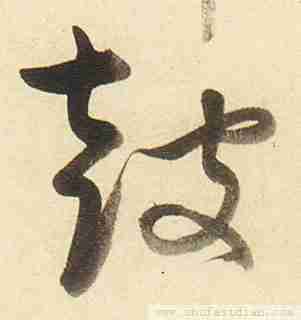 鼓
www.shufazidian.com